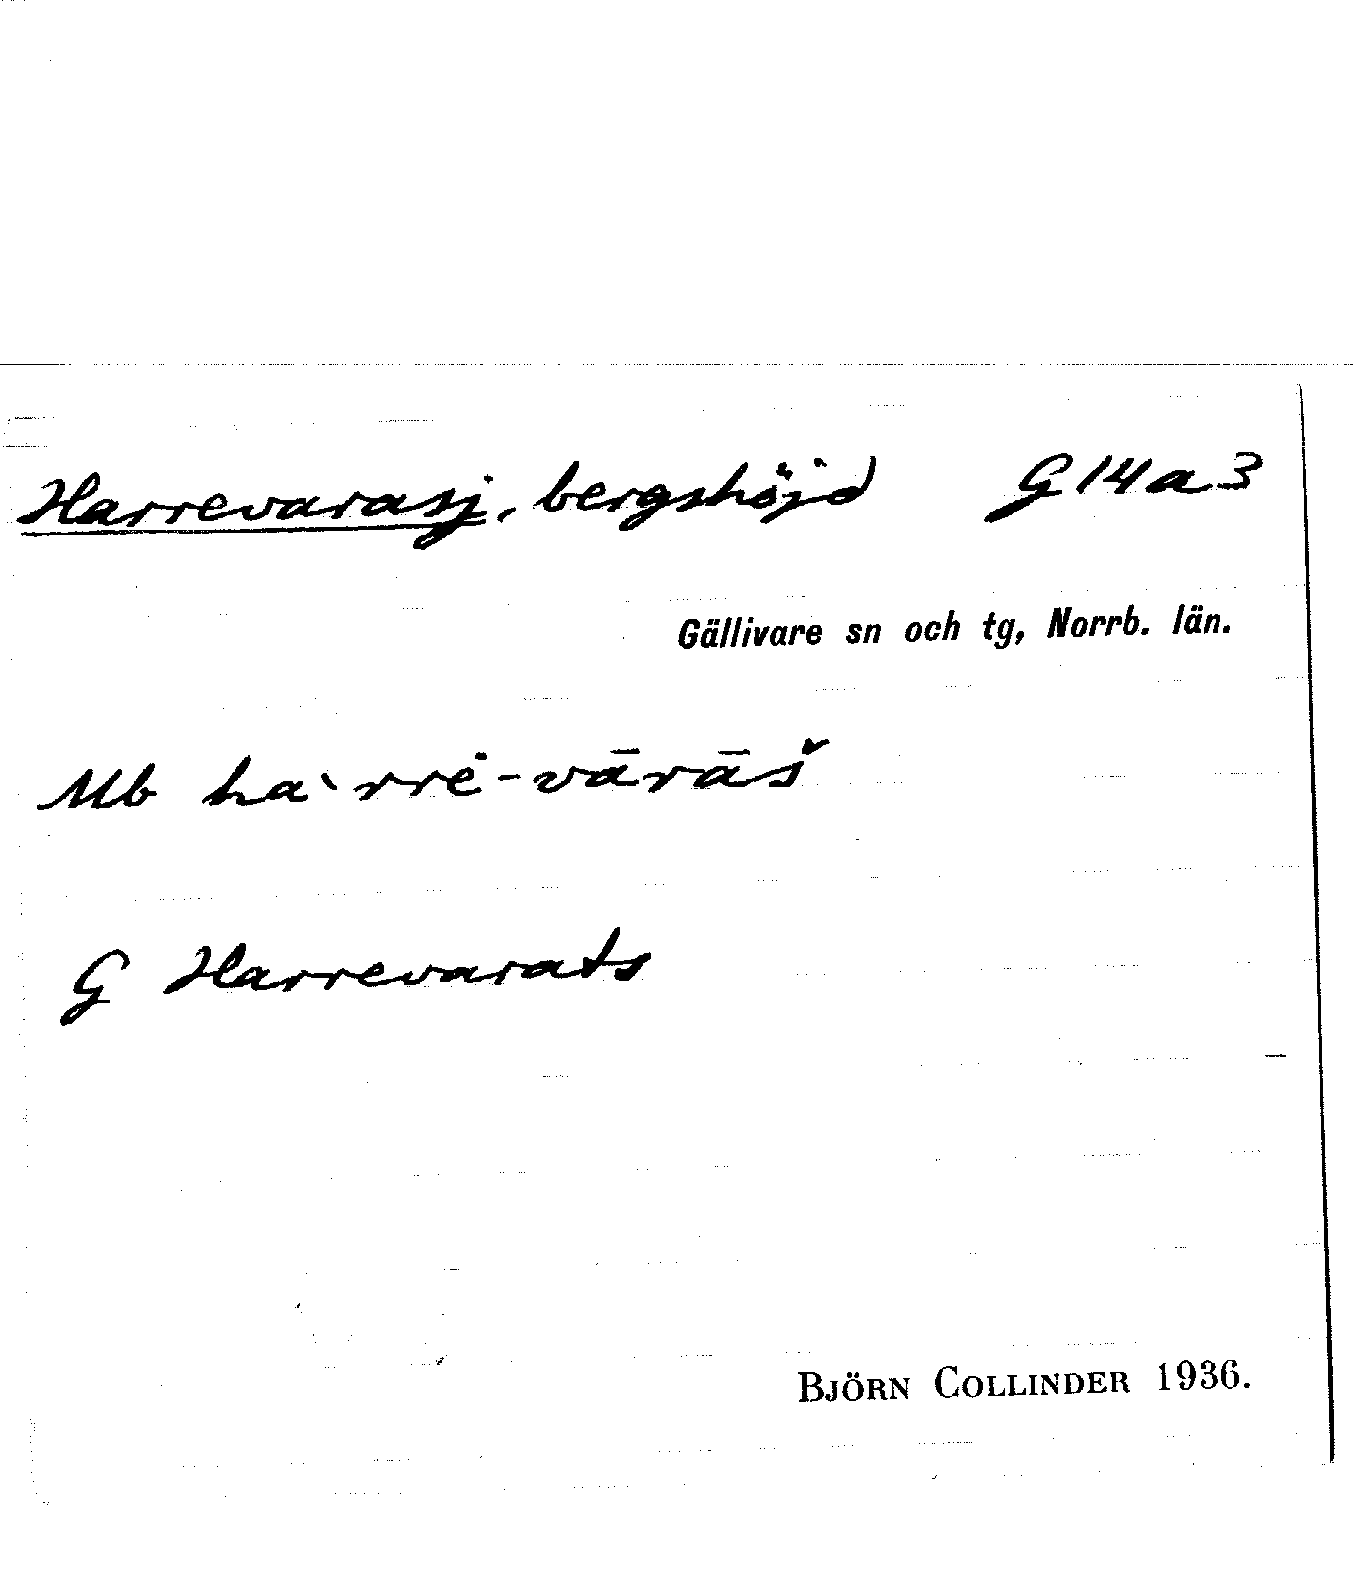 Harrevarasj, bergshöjd G 14 a 3
Gällivare sn och tg, Norrb. län.
Mb ha`rrė-vārāš
G Harrevarats
BJÖRN COLLINDER 1936.